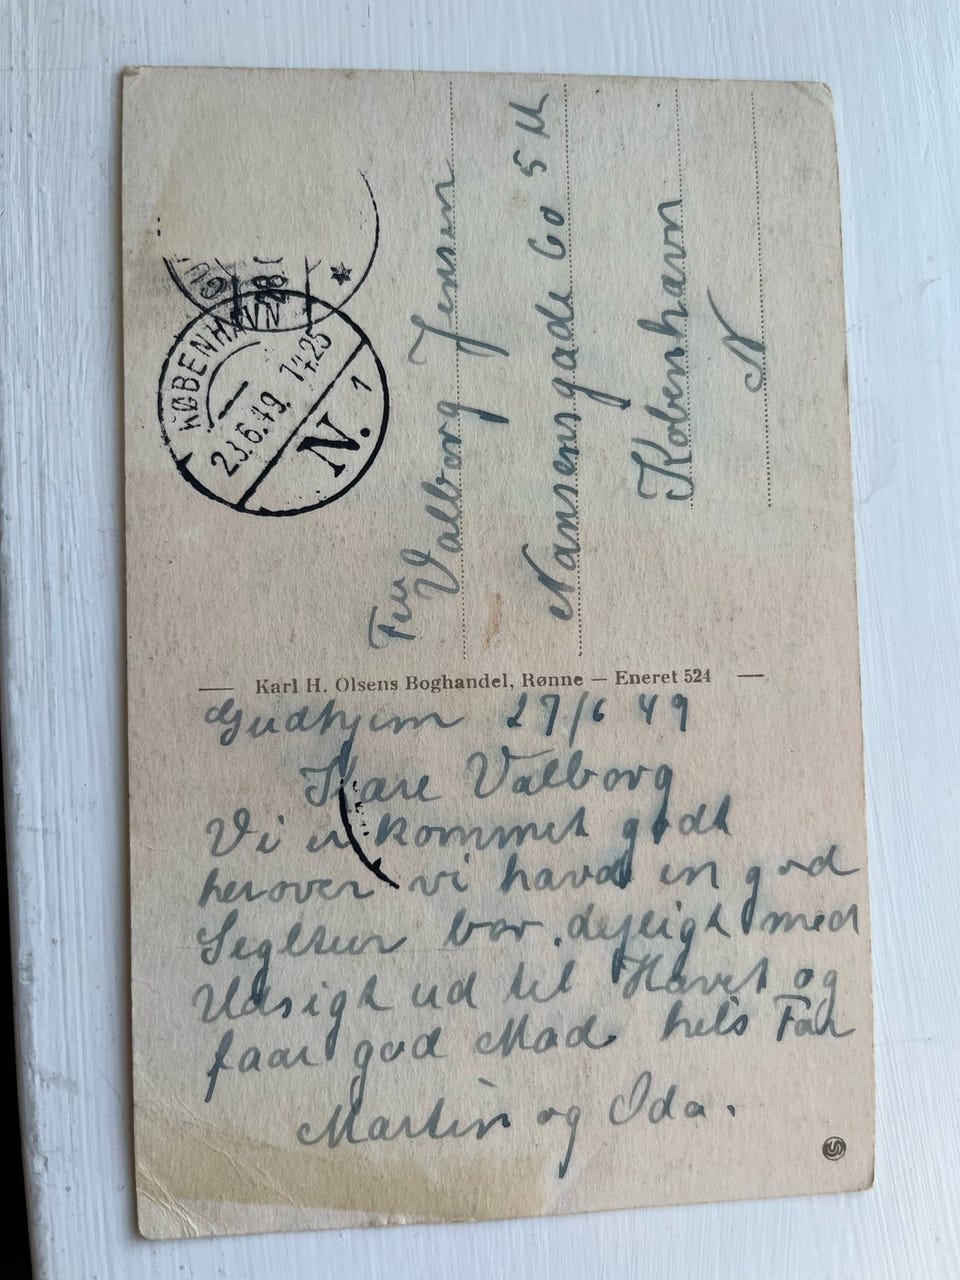 KØBENHAVN
23.6.49. 14.25
N. 1
Fru
Valborg Jensen
Nansensgade 60 5 M
København
N
Karl H. Olsens Boghandel, Rønne — Eneret 524
Gudhjem 27/6 49
Kære Valborg
Vi er kommet godt
herover vi havde en god
Segltur bor dejligt med
Udsigt ud til Havet og
faar god Mad hils Far
Martin og Oda.